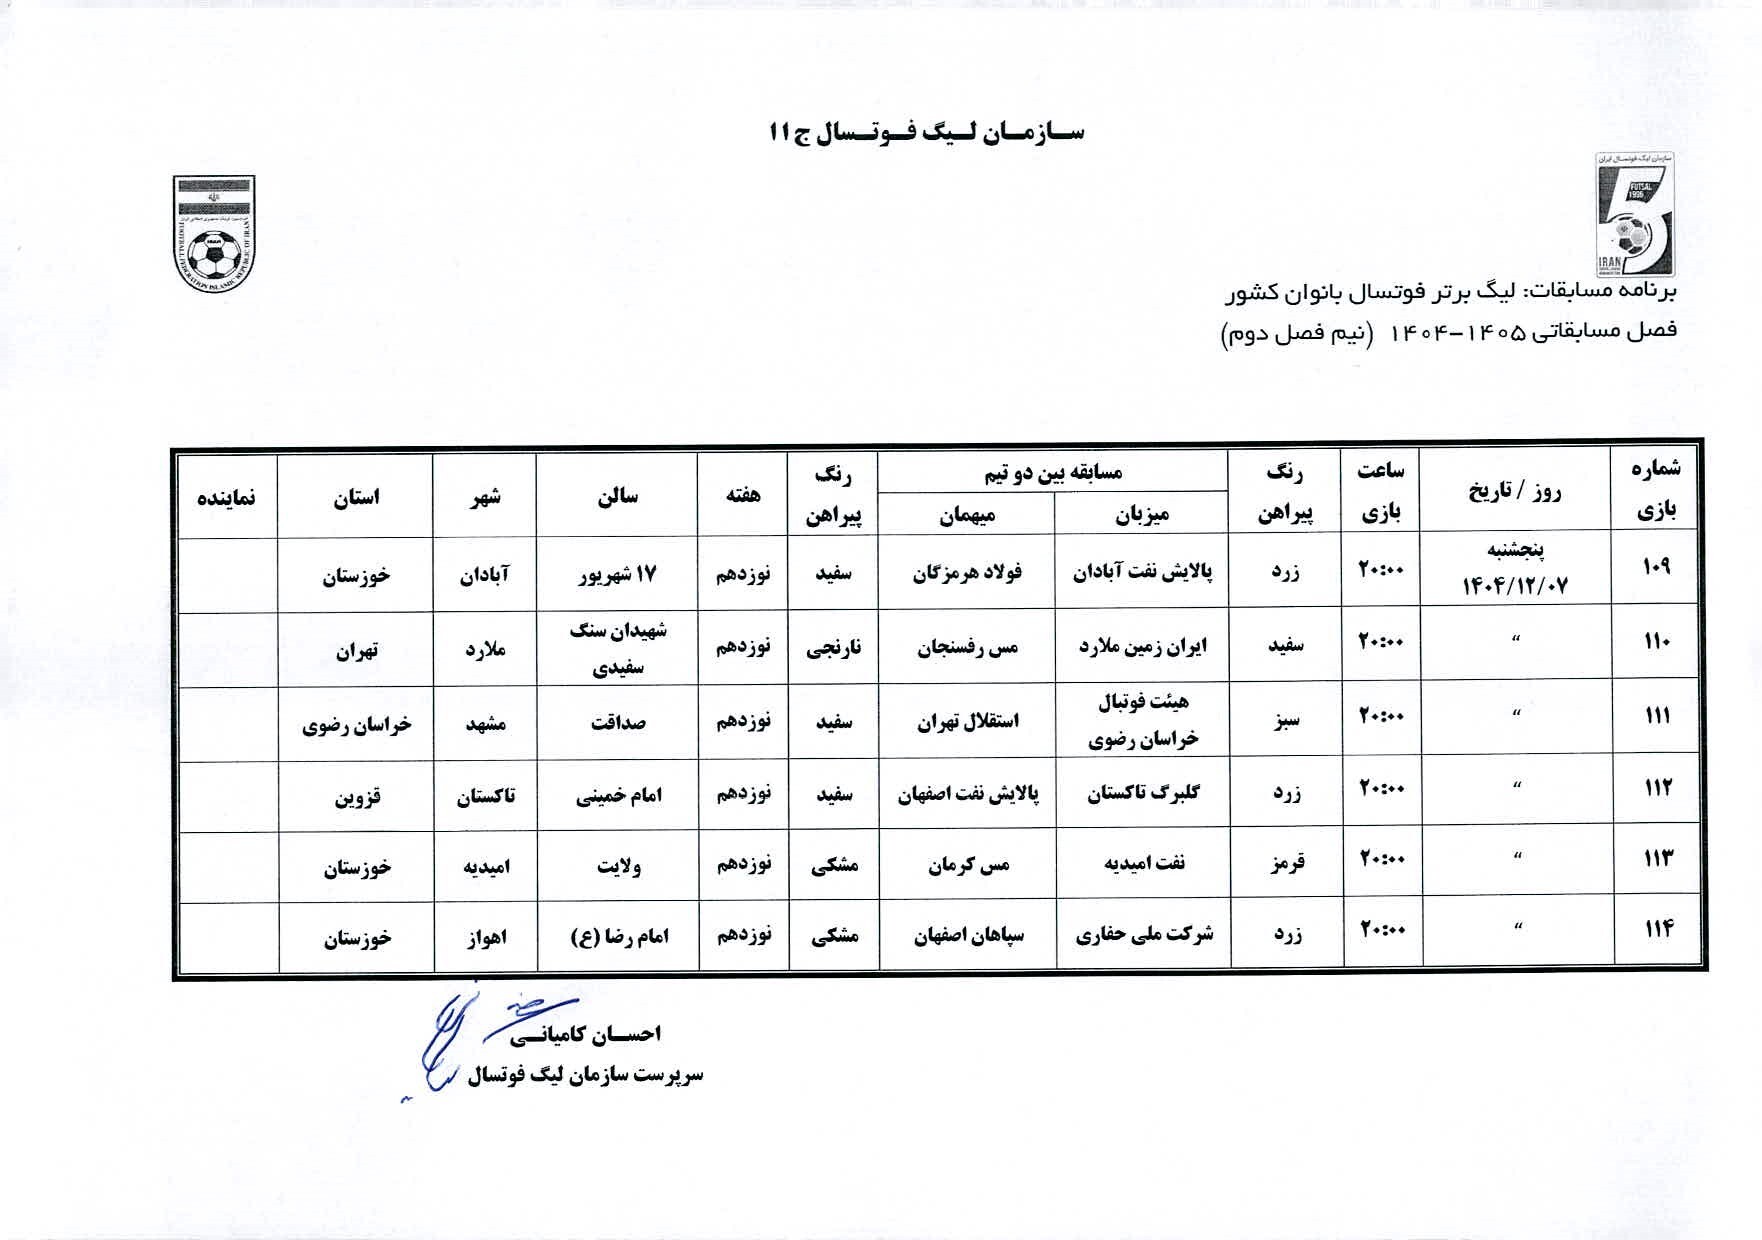 سازمان لیگ فوتسال ج ۱۱
سازمان لیگ فوتسال ایران
FUTSAL
1996
IRAN
FOOTBALL FEDERATION ISLAMIC REPUBLIC OF IRAN
برنامه مسابقات: لیگ برتر فوتسال بانوان کشور
فصل مسابقاتی ۱۴۰۵-۱۴۰۴ (نیم فصل دوم)
شماره بازی | روز / تاریخ | ساعت بازی | رنگ پیراهن | مسابقه بین دو تیم | رنگ پیراهن | هفته | سالن | شهر | استان | نماینده
میزبان | میهمان
۱۰۹ | پنجشنبه ۱۴۰۴/۱۲/۰۷ | ۲۰:۰۰ | زرد | پالایش نفت آبادان | فولاد هرمزگان | سفید | نوزدهم | ۱۷ شهریور | آبادان | خوزستان
۱۱۰ | “ | ۲۰:۰۰ | سفید | ایران زمین ملارد | مس رفسنجان | نارنجی | نوزدهم | شهیدان سنگ سفیدی | ملارد | تهران
۱۱۱ | “ | ۲۰:۰۰ | سبز | هیئت فوتبال خراسان رضوی | استقلال تهران | سفید | نوزدهم | صداقت | مشهد | خراسان رضوی
۱۱۲ | “ | ۲۰:۰۰ | زرد | گلبرگ تاکستان | پالایش نفت اصفهان | سفید | نوزدهم | امام خمینی | تاکستان | قزوین
۱۱۳ | “ | ۲۰:۰۰ | قرمز | نفت امیدیه | مس کرمان | مشکی | نوزدهم | ولایت | امیدیه | خوزستان
۱۱۴ | “ | ۲۰:۰۰ | زرد | شرکت ملی حفاری | سپاهان اصفهان | مشکی | نوزدهم | امام رضا (ع) | اهواز | خوزستان
احسان کامیانی
سرپرست سازمان لیگ فوتسال